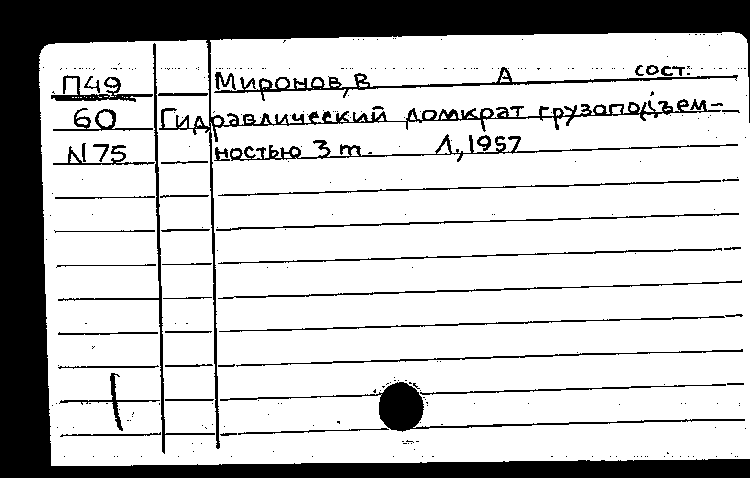 П49 Миронов, В А сост.
60 Гидравлический домкрат грузоподъем-
N75 ностью 3 т. Л., 1957